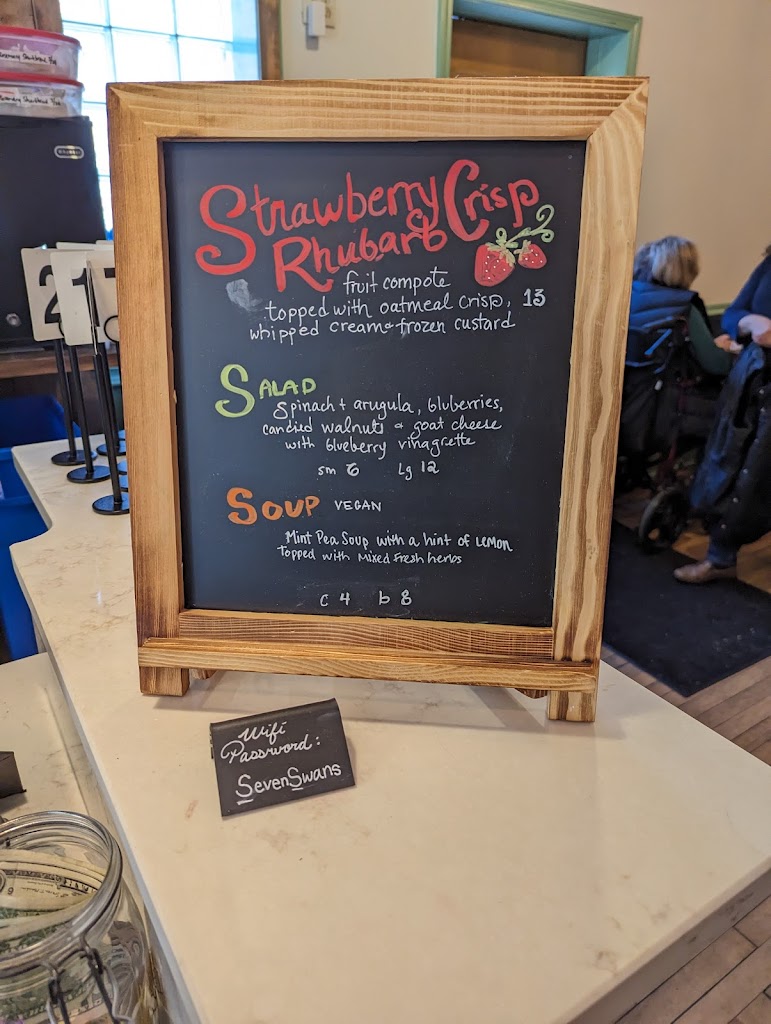 Strawberry Crisp
& Rhubarb
fruit compote
topped with oatmeal crisp, 13
whipped cream + frozen custard
Salad
spinach + arugula, bluberries,
candied walnuts + goat cheese
with blueberry vinagrette
sm 6 Lg 12
Soup VEGAN
Mint Pea Soup with a hint of LEMON
Topped with Mixed Fresh herbs
c 4 b 8
Wifi
Password:
SevenSwans
2
1